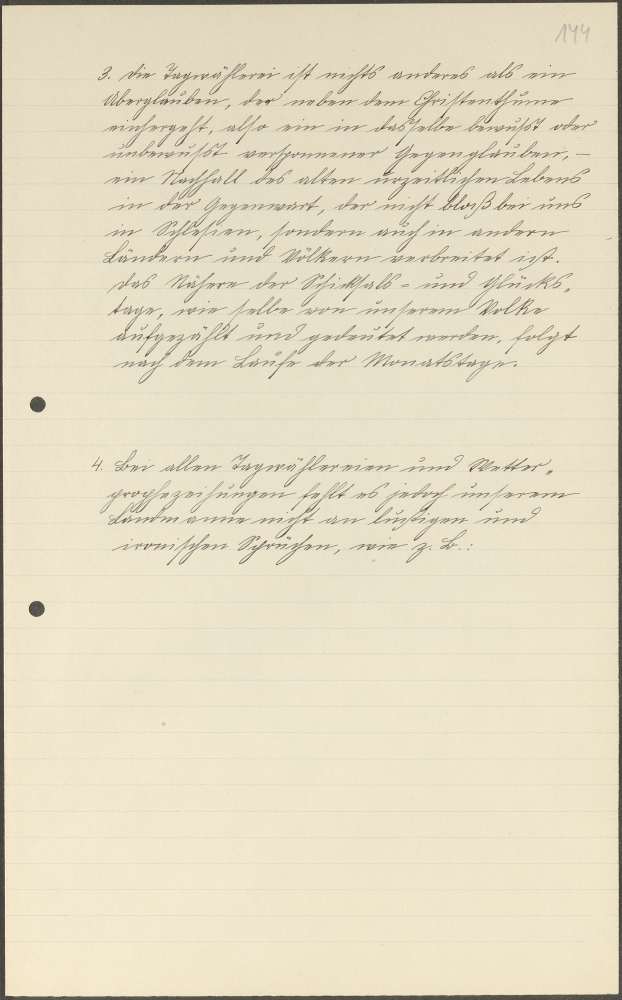 144
3. Die Tagwählerei ist nichts anderes als ein
Aberglauben, der neben dem Christenthume
einhergeht, also ein in dasselbe bewußt oder
unbewußt versponnener Gegenglauben, –
ein Nachhall des alten urzeitlichen Lebens
in der Gegenwart, der nicht bloß bei uns
in Schlesien, sondern auch in andern
Ländern und Völkern verbreitet ist.
Das Nähere der Schicksals- und Glücks-
tage, wie selbe von unserem Volke
aufgezählt und gedeutet werden, folgt
nach dem Laufe der Monatstage.
4. Bei allen Tagwählereien und Wetter-
prophezeihungen fehlt es jedoch unserem
Landmanne nicht an lustigen und
ironischen Sprüchen, wie z. B.: